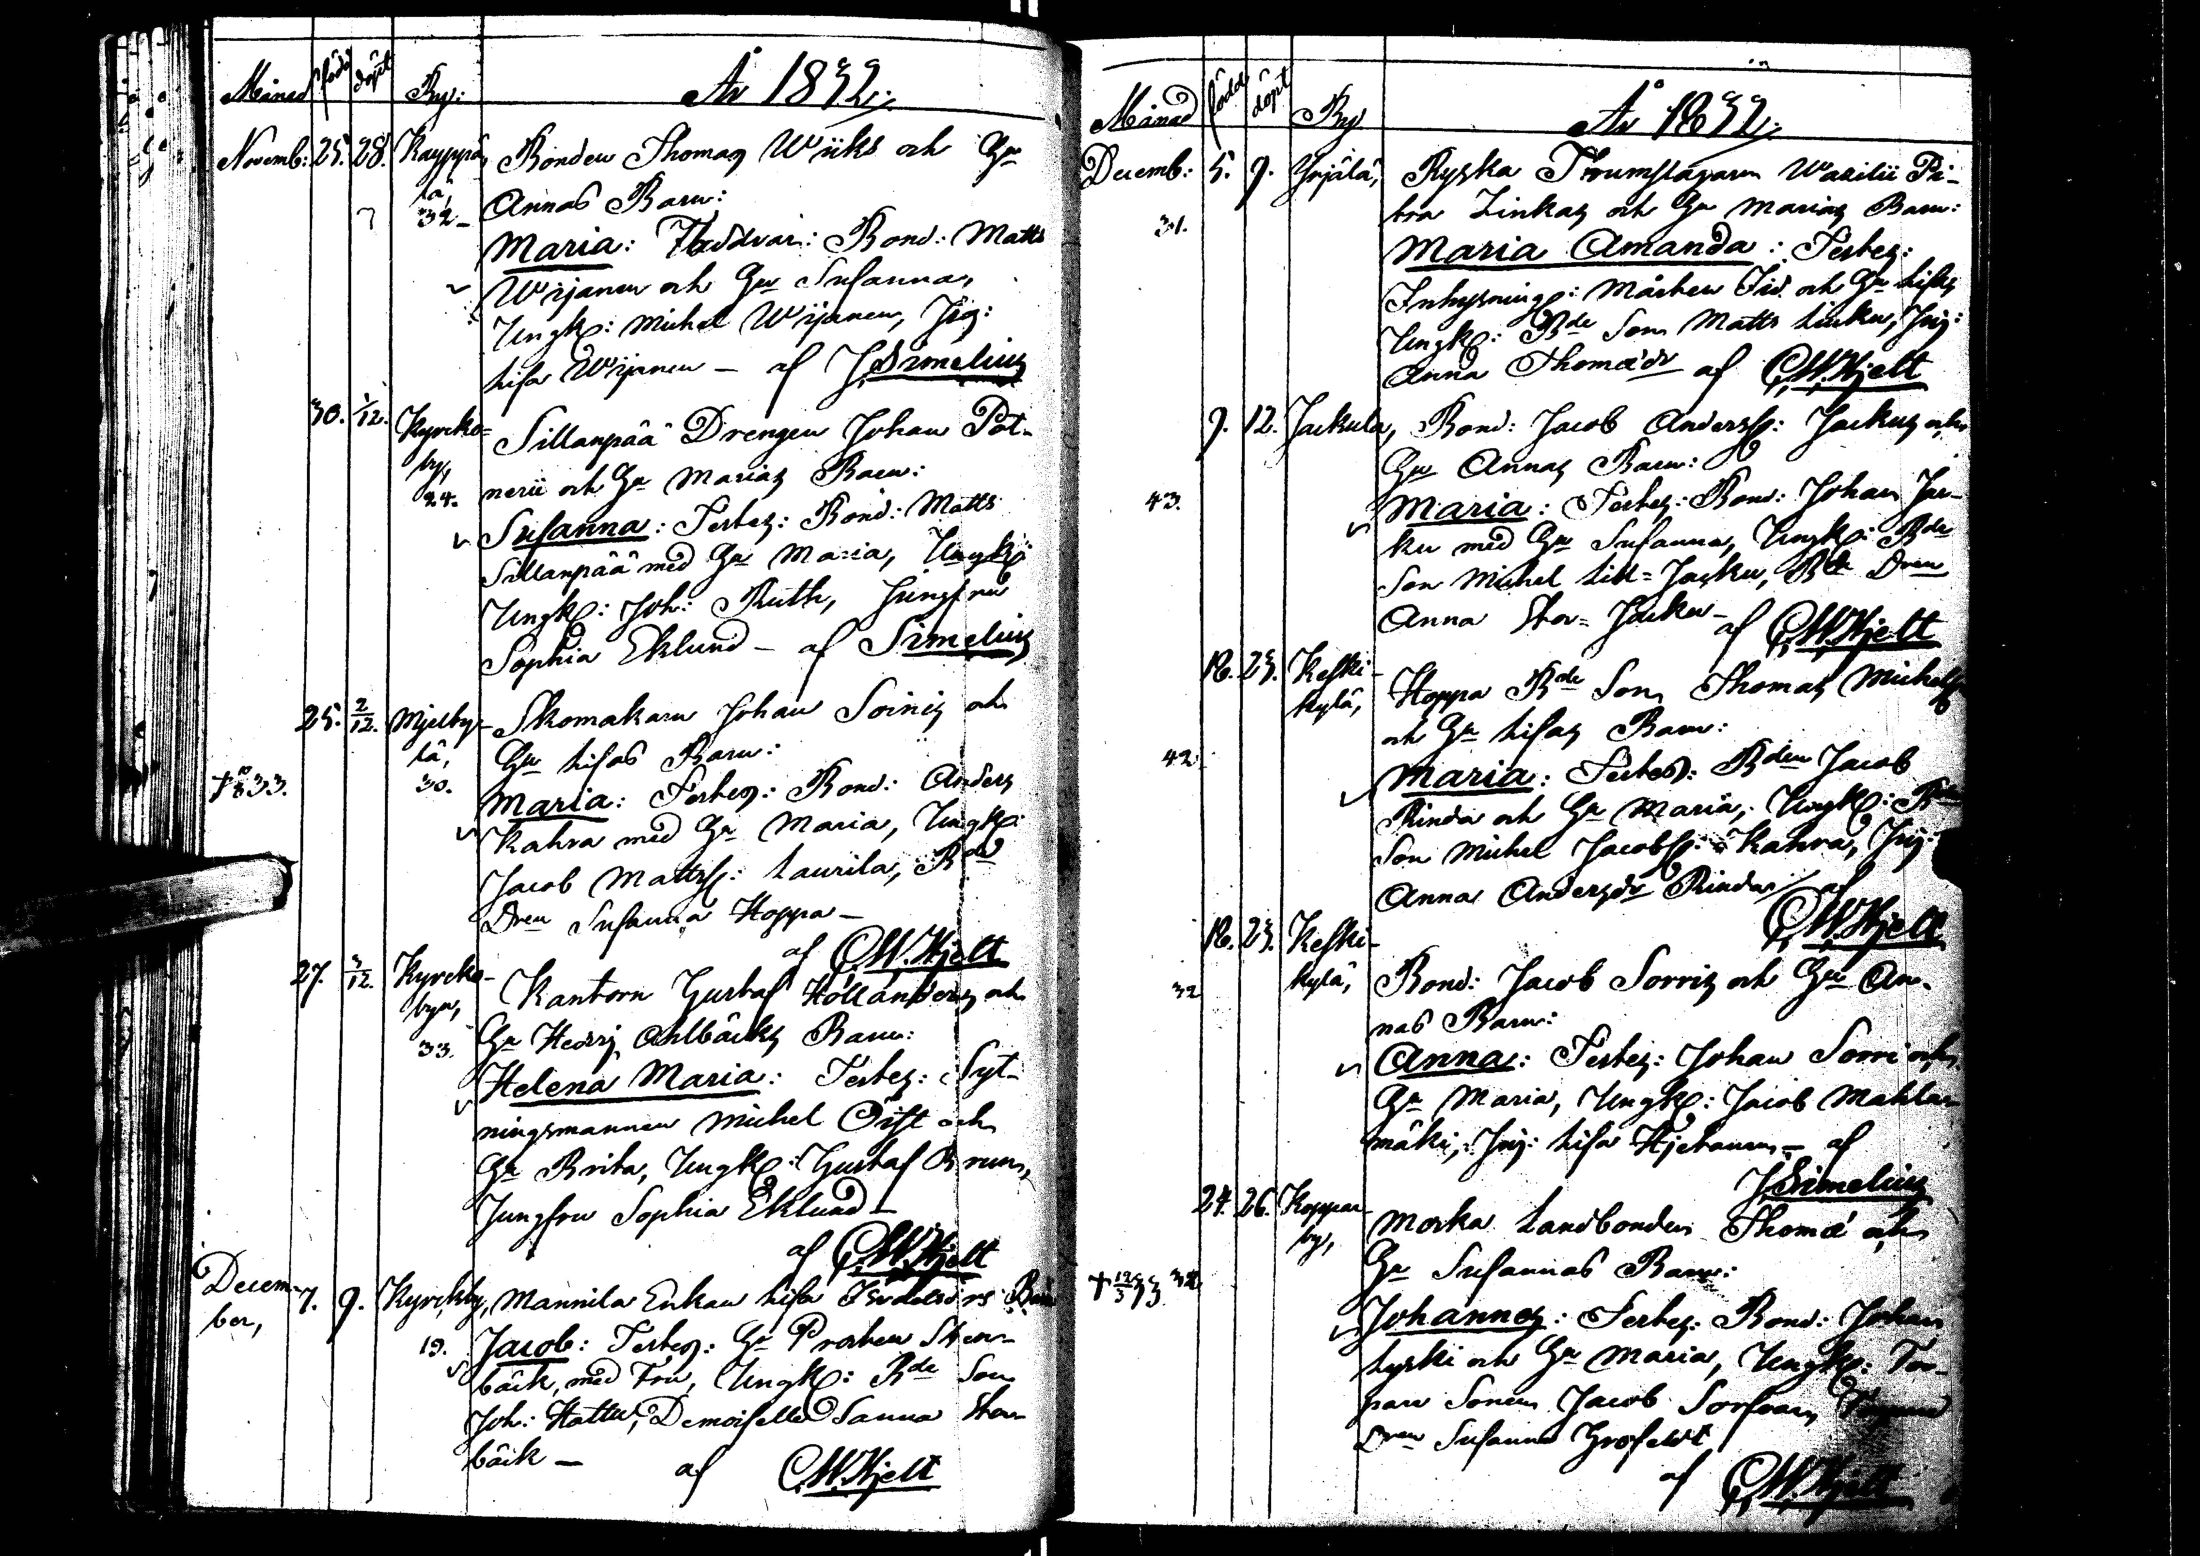 Månad född döpt By: År 1832.
Novemb: 25. 28. Kauppi- Bonden Thomas Wiiks och Hu
lä, Annas Barn:
32- Maria: Faddrar: Bond: Matts
Wirjanen och Hu Susanna,
Ungk: Michel Wirjanen, Pig:
Lisa Wirjanen – af J. Simelius
30. 1/12. Kyrcko- Sillanpää Drengen Johan Pot-
by, nerii och Hu Marias Barn:
24. Susanna: Testes: Bond: Matts
Sillanpää med Hu Maria, Ungk:
Ungk: Joh: Ruth, Jungfru
Sophia Eklund – af Simelius
25. 2/12. Mjelby- Skomakaren Johan Soinis och
lä, Hu Lisas Barn:
33. 30. Maria: Testes: Bond: Anders
Kahra med Hu Maria, Ungk:
Jacob Mattss: Laurila, Bde
Dren Susanna Hoppa –
af C.W. Hjelt
27. 3/12. Kyrcko- Kantorn Gustaf Hölländers och
byn, Hu Hedvig Ahlbäcks Barn:
33. Helena Maria: Testes: Syt-
ningsmannen Michel Öist och
Hu Brita, Ungk: Gustaf Brunn,
Jungfru Sophia Eklund –
af C.W. Hjelt
Decem- 7. 9. Kyrckby, Mannila Enkan Lisa Barn
ber, 19. Jacob: Testes: Hr Prosten Sten-
bäck, med Fru, Ungk: Bde Son
Joh: Hattu, Demoiselle Sanna Sten-
bäck – af C.W. Hjelt
Månad född döpt By År 1832.
Decemb: 5. 9. Ynjälä, Ryska Trumslagaren Wasilii Pi-
31. tra Linkas och Hu Marias Barn:
Maria Amanda: Testes:
Inhysning: Mårten Fid. och Hu Lisa
Ungk: Bde Son Matts Linku, Pig:
Anna Thomædr af C.W. Hjelt
9. 12. Jackula, Bond: Jacob Anderss: Jackus och
Hu Annas Barn:
43. Maria: Testes: Bond: Johan Jac-
ku med Hu Susanna, Ungk: Bde
Son Michel Lill-Jacku, Bde Dren
Anna Stor-Jacku – af C.W. Hjelt
18. 23. Keski- Hoppa Bde Son Thomas Michelss
kylä, och Hu Lisas Barn:
42. Maria: Testes: Bden Jacob
Rinda och Hu Maria, Ungk: Bde
Son Michel Jacobss: Kahra, Pig:
Anna Andersdr Rinda / af
C.W. Hjelt
18. 23. Keski-
32 kylä, Bond: Jacob Sorris och Hu An-
nas Barn:
Anna: Testes: Johan Sorri och
Hu Maria, Ungk: Jacob Mahla-
mäki, Pig: Lisa Hjetanen – af
J. Simelius
24. 26. Koppar- Morka Landbonden Thomæ och
by, Hu Susannas Barn:
† 12/3 33 32 Johannes: Testes: Bond: Johan
Lyski och Hu Maria, Ungk: Tor-
pare Sonen Jacob Sorsvar,
Dren Susanna Grofeldt
af C.W. Hjelt